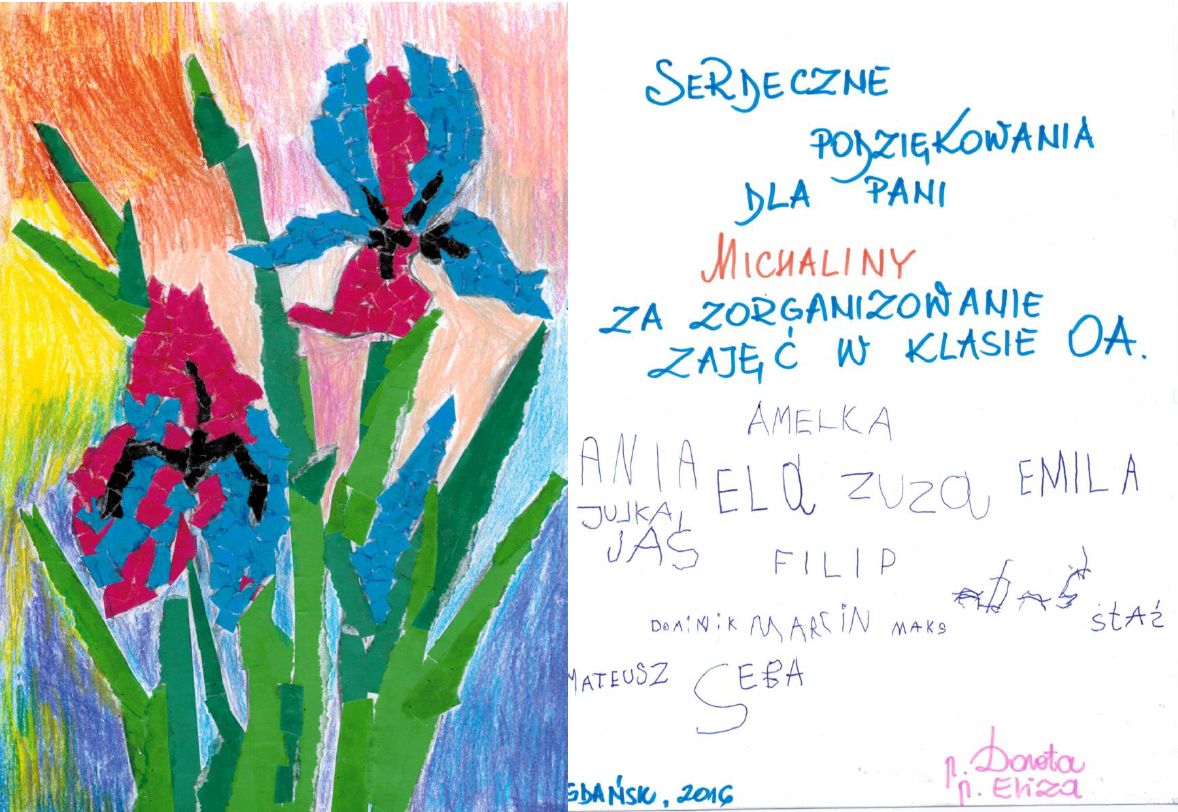 SERDECZNE
PODZIĘKOWANIA
DLA PANI
MICHALINY
ZA ZORGANIZOWANIE
ZAJĘĆ W KLASIE OA.
AMELKA
ANIA ELA ZUZA EMILA
JULKA
JAŚ
FILIP
ADAŚ
DOMINIK MARCIN MAKS STAŚ
MATEUSZ SEBA
p. Dorota
p. Eliza
GDAŃSK, 2016